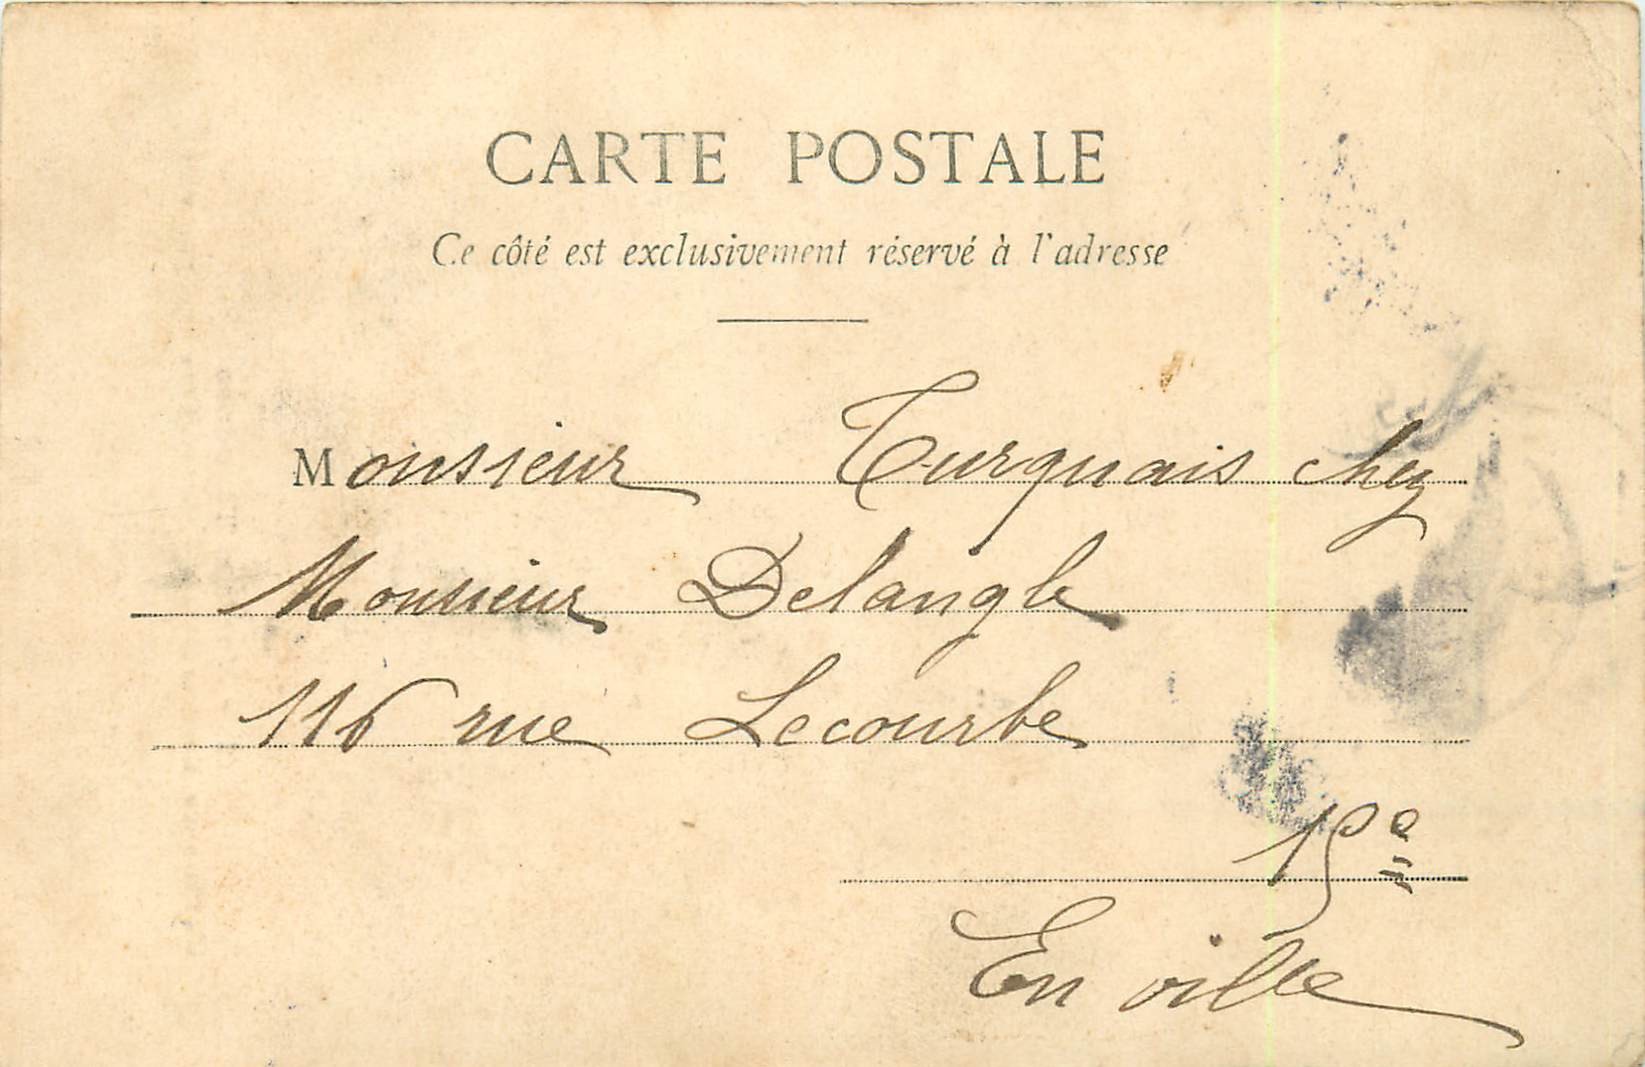 CARTE POSTALE
Ce côté est exclusivement réservé à l'adresse
Monsieur Turquais chez
Monsieur Delangle
116 rue Lecourbe
15e
En ville